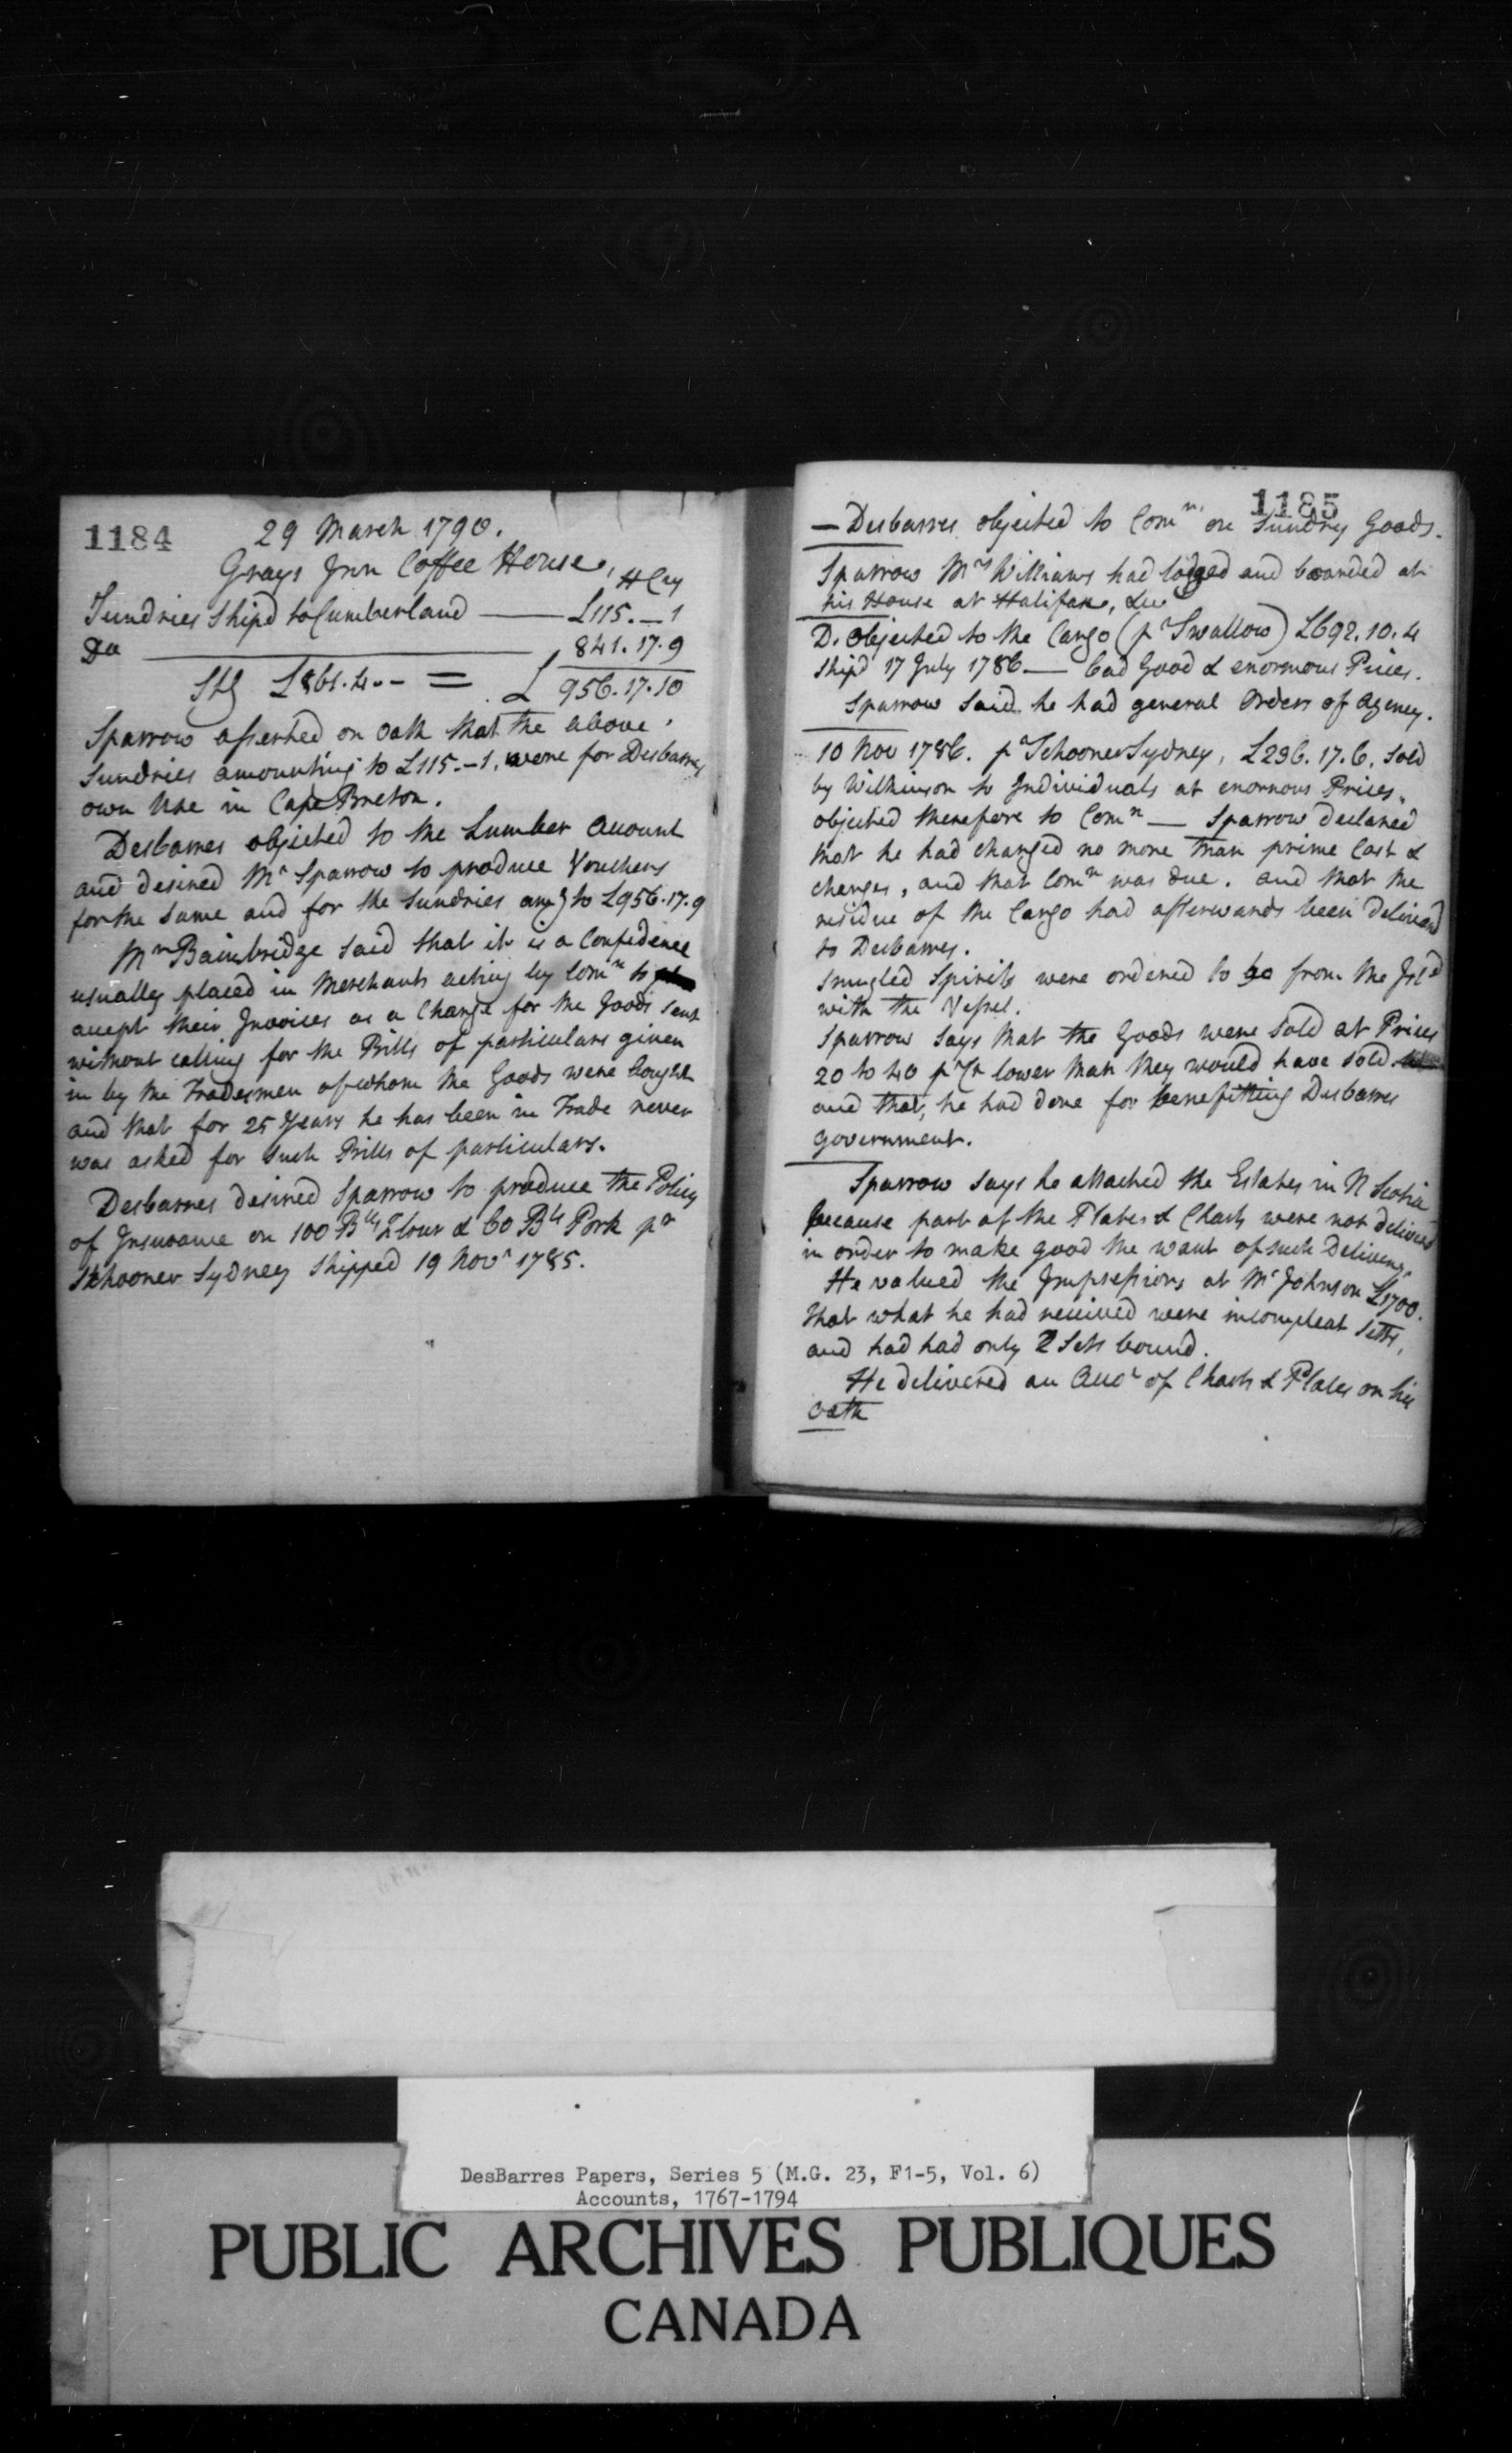 1184
29 March 1790.
Grays Inn Coffee House,
H Cy
Sundries Ship'd to Cumberland — £115.–1
Do — 841.17.9
Stg £861.4.- = £956.17.10
Sparrow asserted on Oath that the above
Sundries amounting to £115.–1. were for Desbarres
own Use in Cape Breton.
Desbarres objected to the Lumber Account
and desired Mr Sparrow to produce Vouchers
for the same and for the Sundries amg to £956.17.9
Mr Bainbridge said that it is a Confidence
usually placed in Merchants acting by Comn to
accept their Invoices as a Charge for the Goods sent
without calling for the Bills of particulars given
in by the Tradesmen of whom the Goods were bought
and that for 25 Years he has been in Trade never
was asked for such Bills of particulars.
Desbarres desired Sparrow to produce the Policy
of Insurance on 100 Bls Flour & 60 Bls Pork pr
Schooner Sydney Shipped 19 Novr 1785.
1185
— Desbarres objected to Comn on Sundry Goods.
Sparrow Mrs Williams had lodged and boarded at
his House at Halifax, &c
D. Objected to the Cargo (pr Swallow) £692.10.4
Ship'd 17 July 1786 — bad Good & enormous Prices.
Sparrow said he had general Orders of Agency.
10 Nov 1786. pr Schooner Sydney, £296.17.6. Sold
by Wilkinson to Individuals at enormous Prices.
objected therefore to Comn — Sparrow declared
that he had charged no more than prime Cost &
charges, and that Comn was due. and that the
residue of the Cargo had afterwards been delivered
to Desbarres.
smugled Spirits were ordered to go from the Isld
with the Vessel.
Sparrow says that the Goods were Sold at Prices
20 to 40 pr Ct lower than they would have sold
and that, he had done for benefitting Desbarres
government.
Sparrow says he attached the Estates in N Scotia
because part of the Plates & Charts were not delivered
in order to make good the want of such Delivery.
He valued the Impressions at Mr Johnson £1700.
that what he had received were incompleat Setts,
and had had only 2 Sets bound.
He delivered an Acct of Charts & Plates on his
oath
DesBarres Papers, Series 5 (M.G. 23, F1-5, Vol. 6)
Accounts, 1767-1794
PUBLIC ARCHIVES PUBLIQUES
CANADA